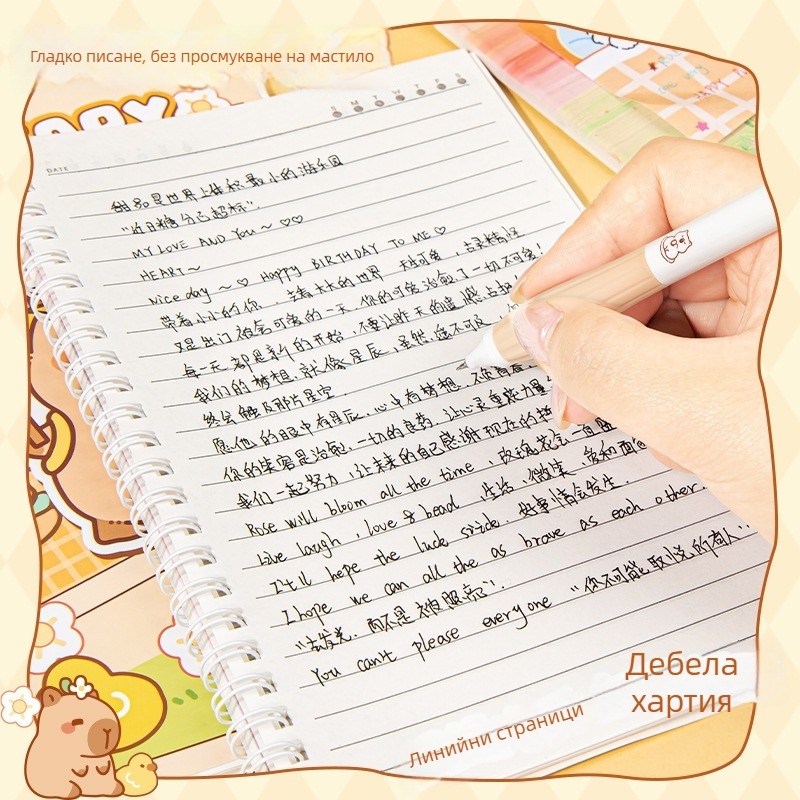 Гладко писане, без просмукване на мастило
HAPPY
S M T W T F S
DATE
甜品是世界上体积最小的游乐园
"近日糖分已超标"
MY LOVE AND You ~ ♡♡
HEART ~
Nice day ~ ♡ Happy BIRTHDAY TO ME ♡
带着小小的你，去看大大的世界 可爱，古灵精怪
又是出门被会可爱的一天，你的可爱治愈了一切不可爱！
每一天都是新的开始，不要让昨天的遗憾
我们的梦想，就像星辰，虽然遥不可及，
终会触及那片星空．
愿他的眼中有星辰，心中有梦想，不负
你的笑容是治愈一切的良药，让心灵重获力量
我们一起努力，让未来的自己感谢现在的
Rose will bloom all the time，玫瑰花会一直
Live laugh，love & bead．生活，微笑，
I'tll hepe the luck 好事情会发生．
I hope we can all the as brave as each other
"去发光，而不是被照亮"．
"你不可能取悦所有人"
You can't please everyone
Дебела
хартия
Линийни страници